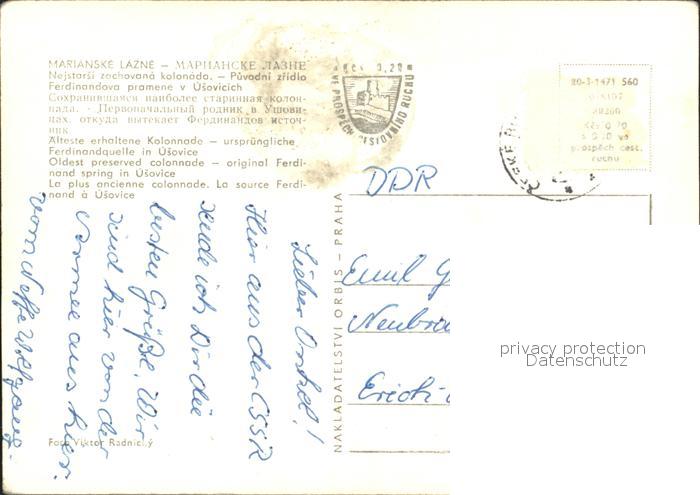 MARIANSKÉ LÁZNĚ — МАРИАНСКЕ ЛАЗНЕ
Nejstarší zachovaná kolonáda. — Původní zřídlo
Ferdinandova pramene v Úšovicích
Сохранившаяся наиболее старинная колон-
нада. - Первоначальный родник в Ушови-
цах, откуда вытекает Фердинандов источ-
ник
Älteste erhaltene Kolonnade — ursprüngliche
Ferdinandquelle in Úšovice
Oldest preserved colonnade — original Ferdi-
nand spring in Úšovice
La plus ancienne colonnade. La source Ferdi-
nand à Úšovice
Kčs 0,20
VE PROSPĚCH CESTOVNÍHO RUCHU
20-3-1471 560
Kčs 0,70
+ 0,20 ve
prospěch cest.
ruchu
DDR
Emil G
Neubra
Erich-
Lieber Onkel!
Hier aus der CSSR
sende ich Dir die
besten Grüße. Wir
sind hier von der
Armee aus hier.
vom Neffe Wolfgang.
NAKLADATELSTVÍ ORBIS — PRAHA
Foto Viktor Radnický
privacy protection
Datenschutz